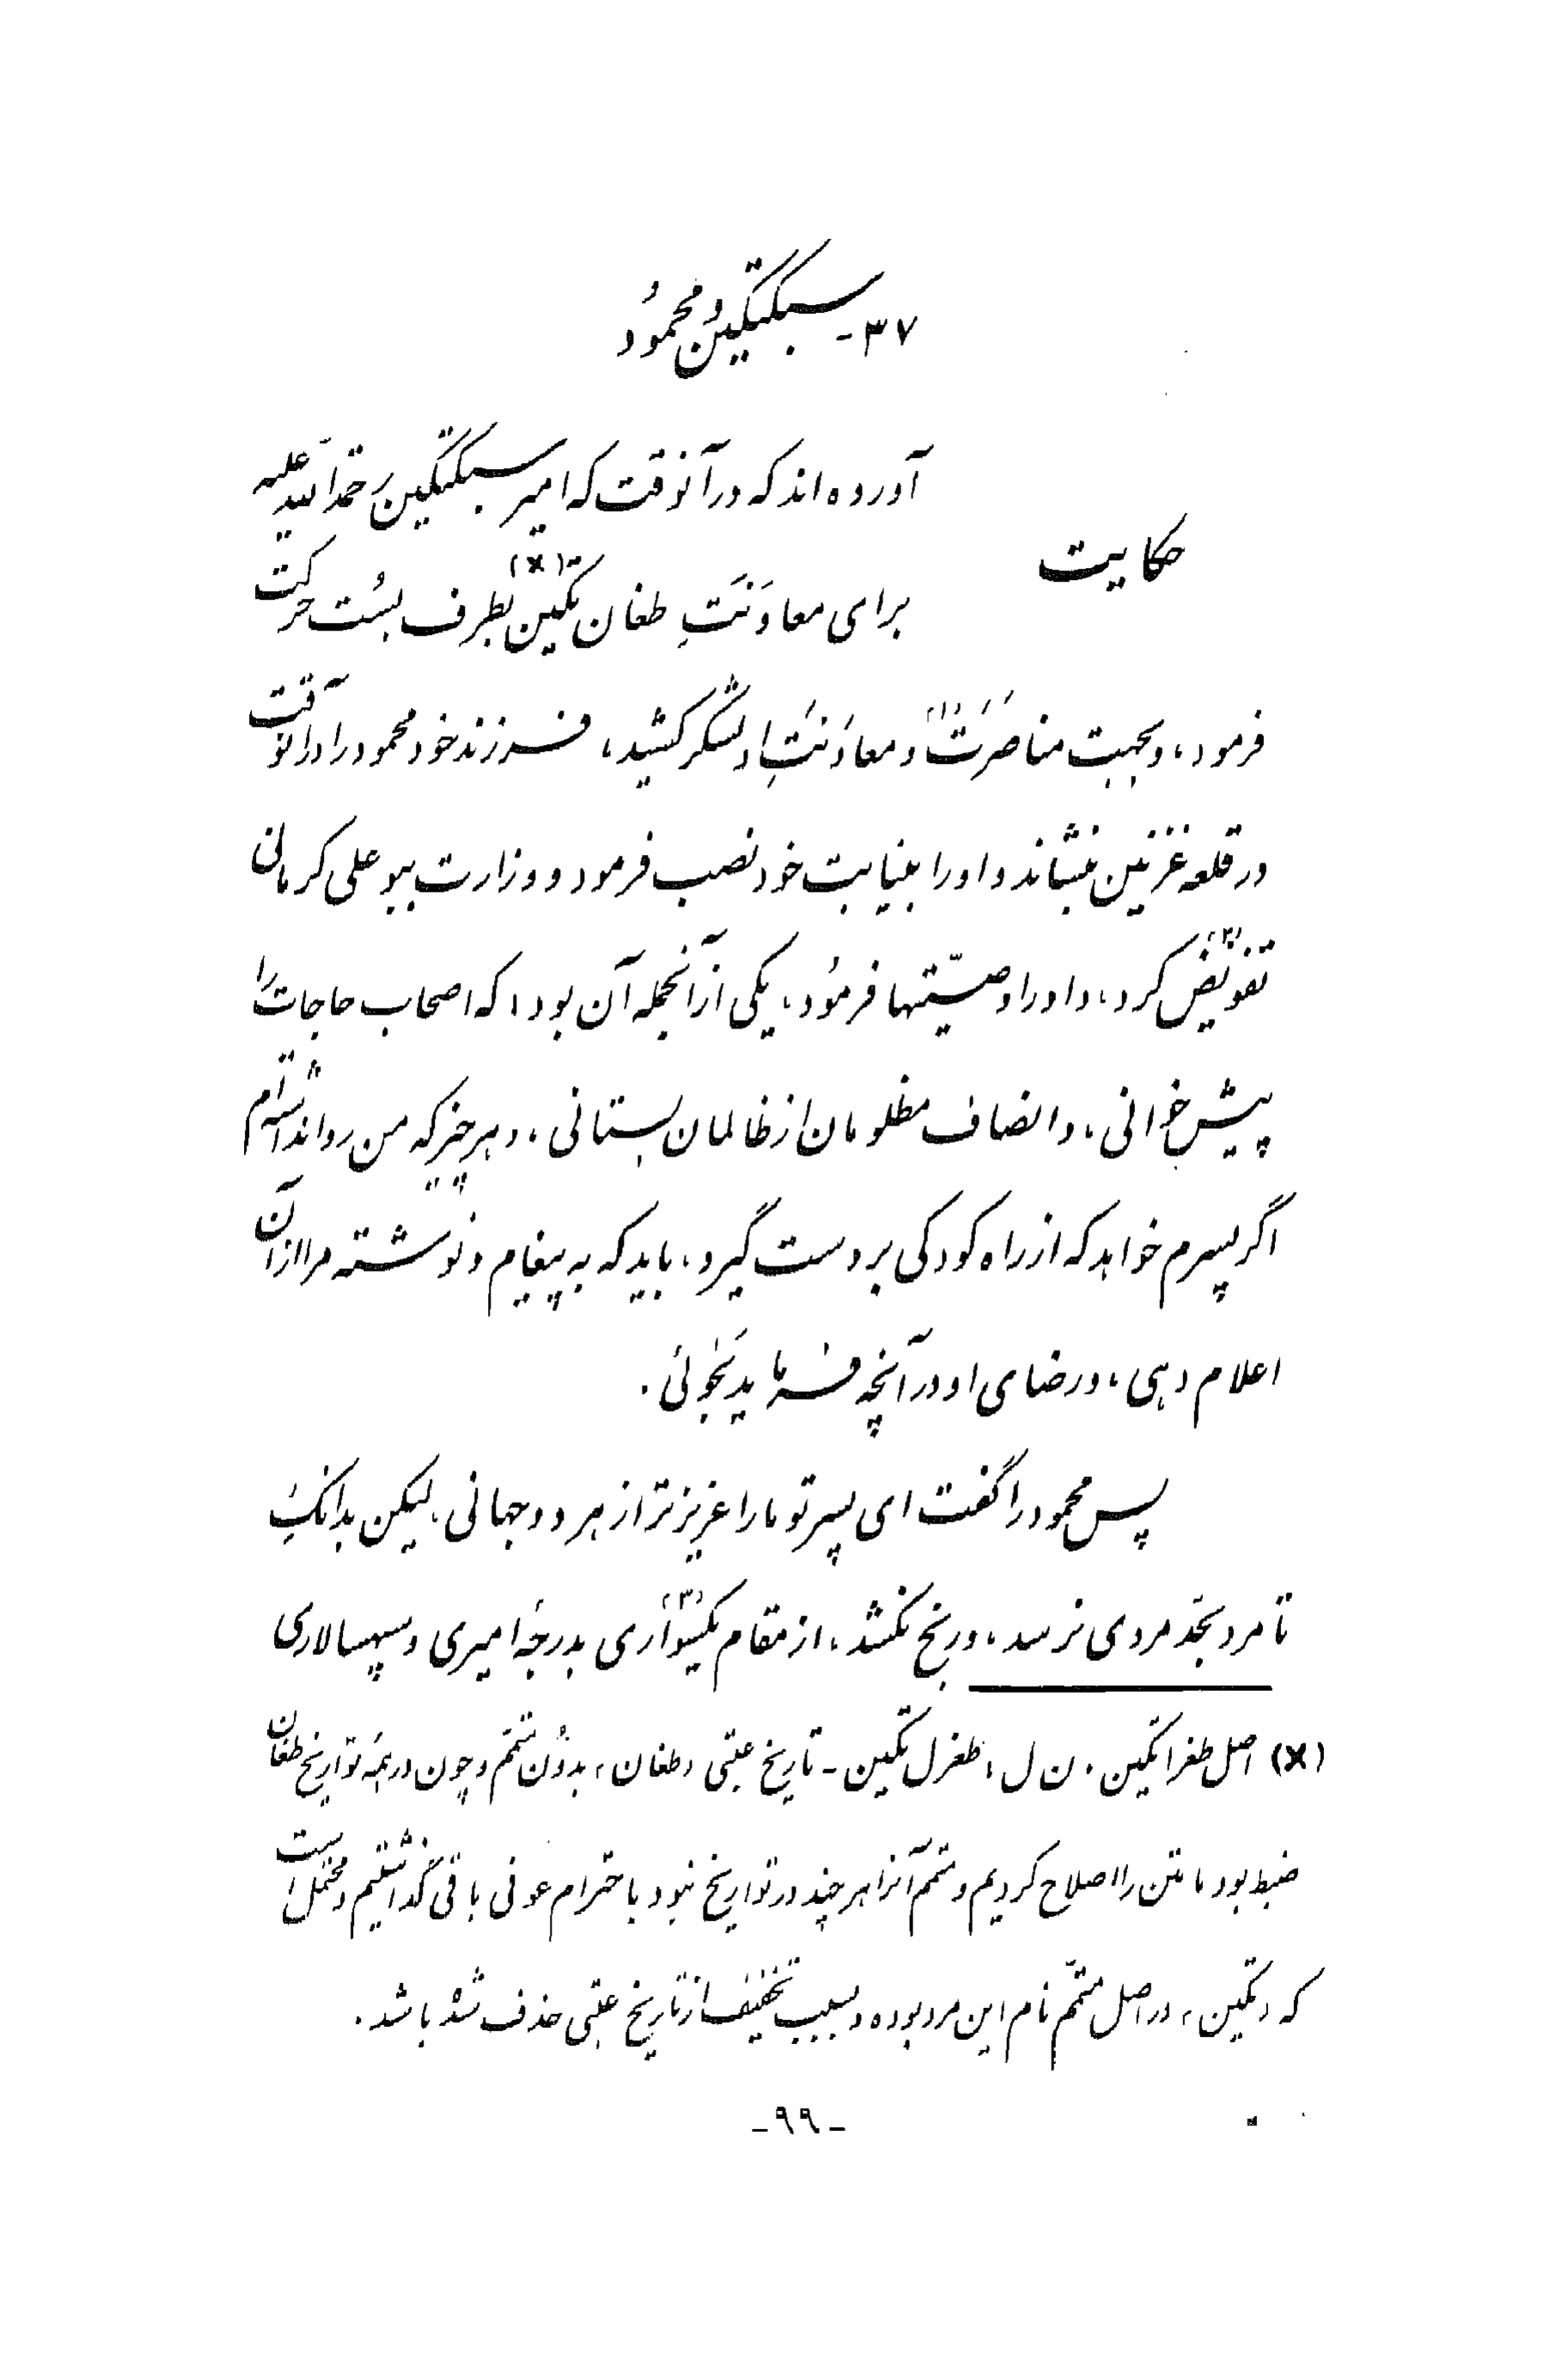 ۳۷- سبکتگین و محمود
آورده اند که در آنوقت که امیر سبکتگین رحمة الله علیه
حکایت
برای معاوَنَتِ طغان تکین (×) بطرف بُست حرکت
فرمود، و بجهت مناصَرَت (۱) و معاوَنَتِ او لشکر کشید، فرزند خود محمود را در آنوقت
در قلعه غزنین بنشاند و او را بنیابت خود نصب فرمود و وزارت ببو علی کرمانی
تفویض (۲) کرد، و او را وصیّتها فرمود، یکی از آنجمله آن بود، که اصحاب حاجات را
پیش خوانی، و انصاف مظلومان از ظالمان بستانی، و هر چیز که من روا نداشته ام
اگر پسرم خواهد که از راه کودکی بر دست گیرد، باید که به پیغام و نوشته مرا از آن
اعلام دهی، و رضای او در آنچه فرماید نَجوئی.
پس محمود را گفت ای پسر تو ما را عزیزتر از هر دو جهانی، لیکن بدانک
تا مرد بحدّ مردی نرسد، و رنج نکشد، از مقام یکسواری (۳) بدرجهٔ امیری و سپهسالاری
(×) اصل طغرا تکین. ن ل، طغرل تکین - تاریخ عتبی «طغان» بدون متمّم و چون در همهٔ تواریخ طغان
ضبط بود ما متن را اصلاح کردیم و متمم آنرا هر چند در تواریخ نبود باحترام عوفی باقی گذاشتیم و محتمل است
که «تکین» در اصل متمّم نام این مرد بوده و بسبب تخفیف از تاریخ عتبی حذف شده باشد.
-۹۹-